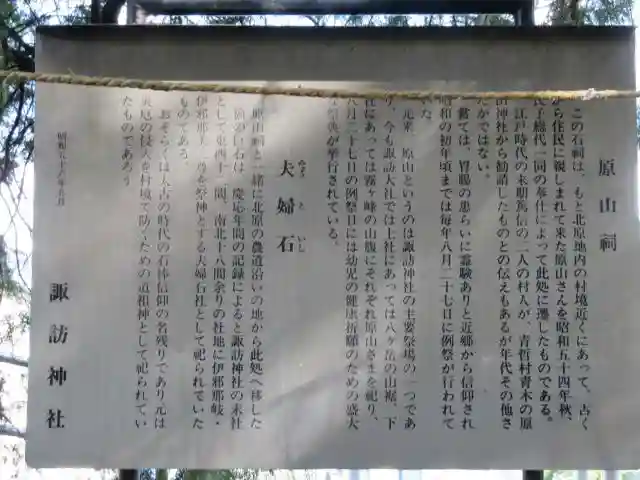 原山祠
この石祠は、もと北原地内の村境近くにあって、古く
から住民に親しまれて来た原山さんを昭和五十四年秋、
氏子総代一同の奉仕によって此処に遷したものである。
江戸時代の末期篤信の二人の村人が、青哲村青木の原
山神社から勧請したものとの伝えもあるが年代その他さ
だかではない。
曽ては、胃腸の患らいに霊験ありと近郷から信仰され
昭和の初年頃までは毎年八月二十七日に例祭が行われて
いた。
元来、原山というのは諏訪神社の主要祭場の一つであ
り、今も諏訪大社では上社にあっては八ヶ岳の山裾、下
社にあっては霧ヶ峰の山腹にそれぞれ原山さまを祀り、
八月二十七日の例祭日には幼児の健康祈願のための盛大
な祭典が挙行されている。
夫婦石
めおといし
原山祠と一緒に北原の農道沿いの地から此処へ移した
個の石は、慶応年間の記録によると諏訪神社の末社
として東西十二間、南北十八間余りの社地に伊邪那岐・
伊邪那美二尊を祭神とする夫婦石社として祀られていた
ものである。
おそらくは太古の時代の石棒信仰の名残りであり元は
災厄の侵入を村境で防ぐための道祖神として祀られてい
たものであろう
昭和五十六年五月
諏訪神社